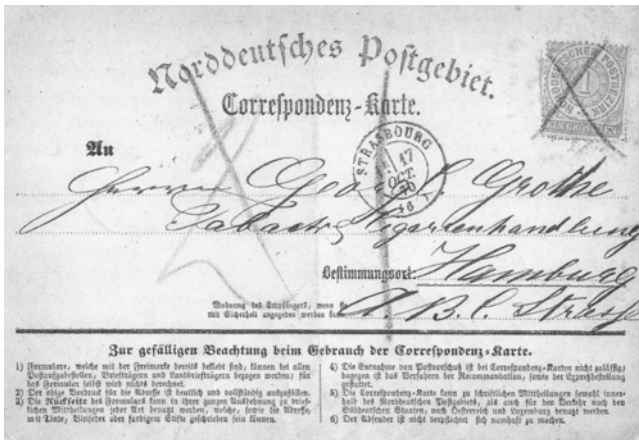 Norddeutsches Postgebiet.
Correspondenz-Karte.
NORDDEUTSCHER POSTBEZIRK
1
EIN GROSCHEN
STRASBOURG
17
OCT.
70
An
Herrn Geo. L. Grothe
Taback & Cigarrenhandlung
Bestimmungsort: Hamburg
Wohnung des Empfängers, wenn sie
mit Sicherheit angegeben werden kann
A. B. C. Strasse
Zur gefälligen Beachtung beim Gebrauch der Correspondenz-Karte.
1) Formulare, welche mit der Freimarke bereits beklebt sind, können bei allen
Postaufgabestellen, Briefträgern und Landbriefträgern bezogen werden; für
das Formular selbst wird nichts berechnet.
2) Der obige Vordruck für die Adresse ist deutlich und vollständig auszufüllen.
3) Die Rückseite des Formulars kann in ihrer ganzen Ausdehnung zu brief-
lichen Mittheilungen jeder Art benutzt werden, welche, sowie die Adresse,
mit Tinte, Bleifeder oder farbigem Stifte geschrieben sein können.
4) Die Entnahme von Postvorschuß ist bei Correspondenz-Karten nicht zulässig;
dagegen ist das Verfahren der Recommandation, sowie der Expreßbestellung
gestattet.
5) Die Correspondenz-Karte kann zu schriftlichen Mittheilungen sowohl inner-
halb des Norddeutschen Postgebiets, als auch für den Verkehr nach den
Süddeutschen Staaten, nach Oesterreich und Luxemburg benutzt werden.
6) Der Absender ist nicht verpflichtet sich namhaft zu machen.